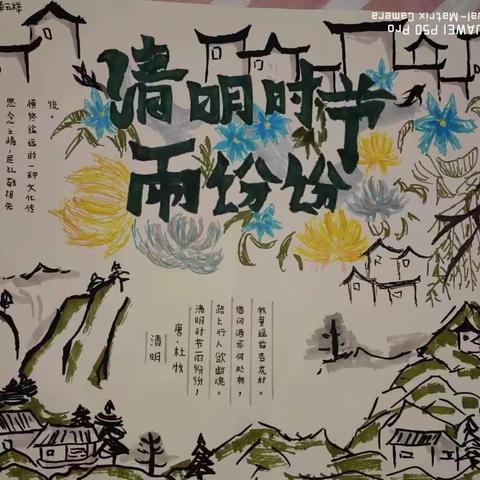 清明时节
雨纷纷
思念之情，是礼敬祖先
慎终追远的一种文化传
统。
清明
唐·杜牧
清明时节雨纷纷，
路上行人欲断魂。
借问酒家何处有，
牧童遥指杏花村。
UAWEI P50 Pro
ual-Matrix Camera